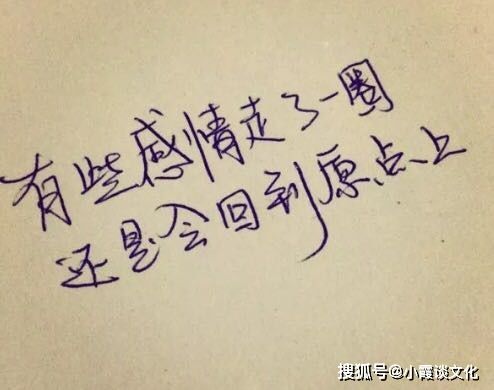 有些感情走了一圈
还是会回到原点上
搜狐号@小霞谈文化